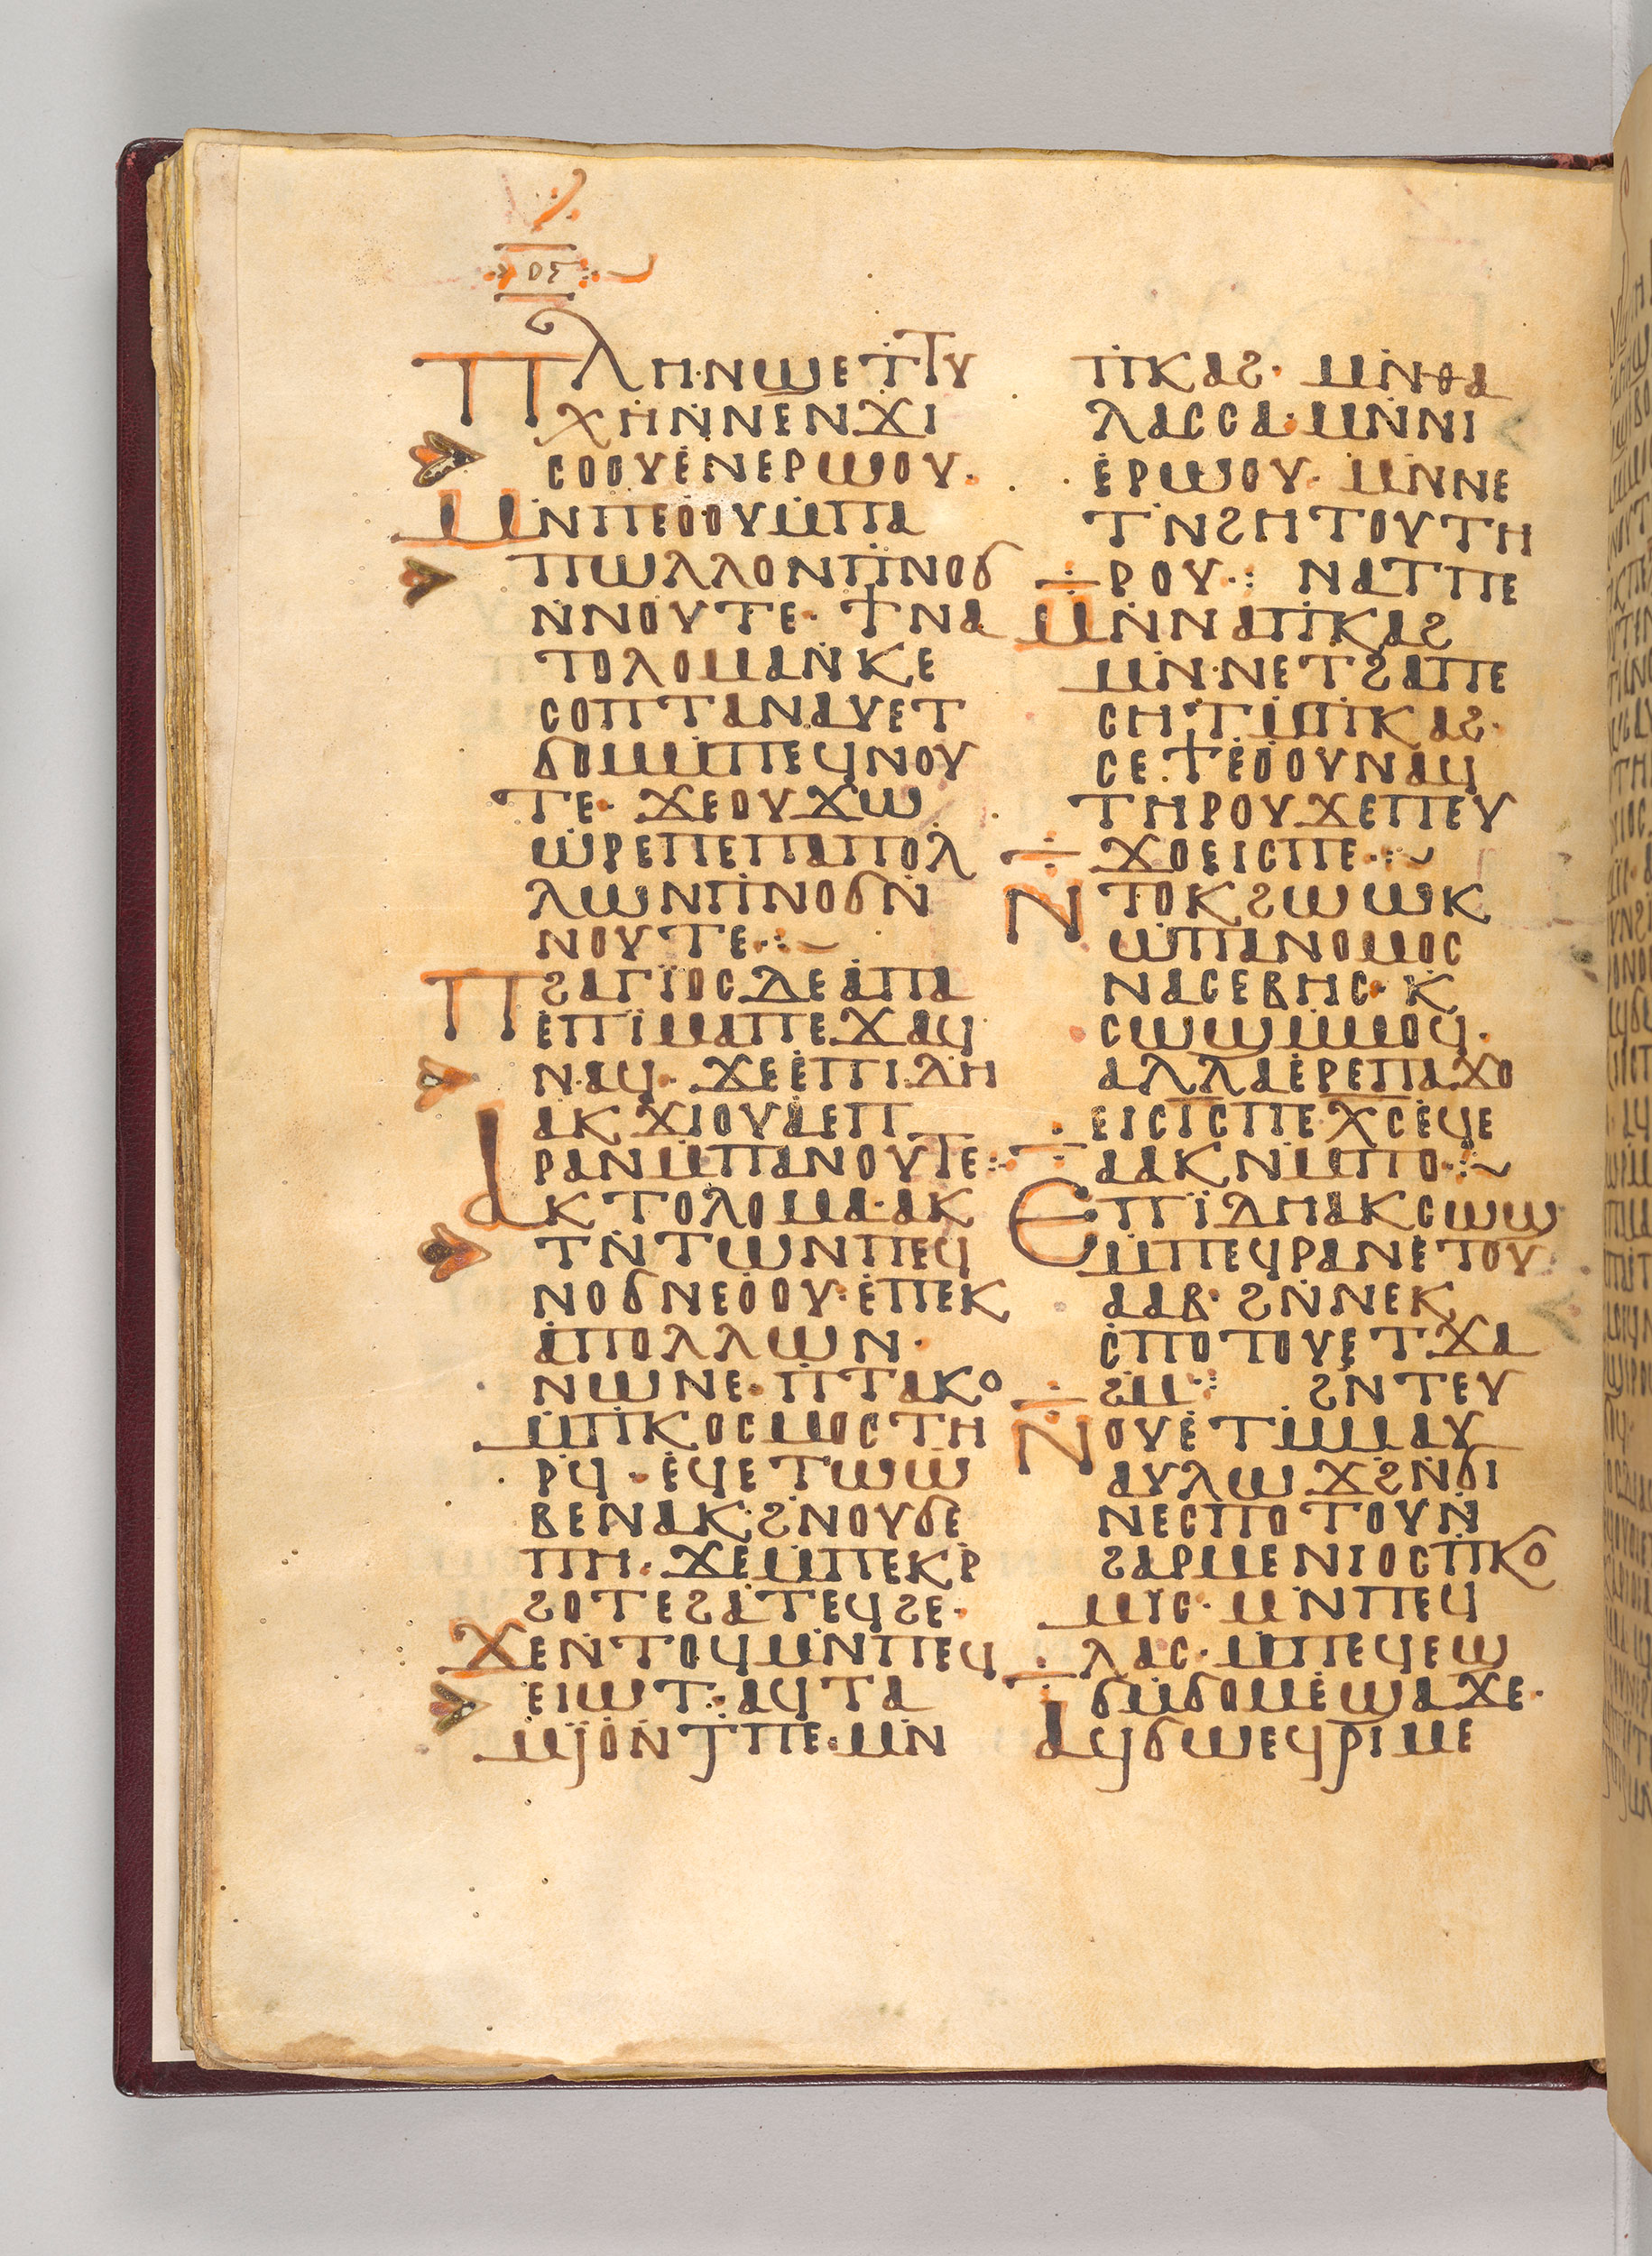 ⲡⲗⲏⲛϣⲉⲧⲧⲩ
ⲭⲏⲛⲛⲉⲛϫⲓ
ⲥⲟⲟⲩⲉⲛⲉⲣⲱⲟⲩ·
ⲙⲛⲡⲉⲟⲟⲩⲙⲡⲁ
ⲡⲱⲗⲗⲟⲛⲡⲛⲟϭ
ⲛⲛⲟⲩⲧⲉ· ϯⲛⲁ
ⲧⲟⲗⲟⲙⲁⲛⲕⲉ
ⲥⲟⲡⲧⲁⲛⲁⲩⲉⲧ
ϭⲟⲙⲙⲡⲉϥⲛⲟⲩ
ⲧⲉ· ϫⲉⲟⲩϫⲱ
ⲱⲣⲉⲡⲉⲡⲁⲡⲟⲗ
ⲗⲱⲛⲡⲛⲟϭⲛ
ⲛⲟⲩⲧⲉ·:~
ⲡϩⲁⲅⲓⲟⲥⲇⲉⲁⲡⲁ
ⲉⲡⲓⲙⲁⲡⲉϫⲁϥ
ⲛⲁϥ· ϫⲉⲉⲡⲓⲇⲏ
ⲁⲕϫⲓⲟⲩⲁⲉⲡ
ⲣⲁⲛⲙⲡⲁⲛⲟⲩⲧⲉ:
ⲁⲕⲧⲟⲗⲟⲙⲁ·ⲁⲕ
ⲧⲛⲧⲱⲛⲡⲉϥ
ⲛⲟϭⲛⲉⲟⲟⲩ·ⲉⲡⲉⲕ
ⲁⲡⲟⲗⲗⲱⲛ·
ⲛⲱⲛⲉ·ⲡⲧⲁⲕⲟ
ⲙⲡⲕⲟⲥⲙⲟⲥⲧⲏ
ⲣϥ·ⲉϥⲉⲧⲱⲱ
ⲃⲉⲛⲁⲕ·ϩⲛⲟⲩϭⲉ
ⲡⲏ·ϫⲉⲙⲡⲉⲕⲣ
ϩⲟⲧⲉϩⲁⲧⲉϥϩⲉ·
ϫⲉⲛⲧⲟϥⲙⲛⲡⲉϥ
ⲉⲓⲱⲧ·ⲁϥⲧⲁ
ⲙⲓⲟⲛⲧⲡⲉ·ⲙⲛ
ⲡⲕⲁϩ· ⲙⲛⲑⲁ
ⲗⲁⲥⲥⲁ·ⲙⲛⲛⲓ
ⲉⲣⲱⲟⲩ· ⲙⲛⲛⲉ
ⲧⲛϩⲏⲧⲟⲩⲧⲏ
ⲣⲟⲩ·: ⲛⲁⲧⲡⲉ
ⲙⲛⲛⲁⲡⲕⲁϩ
ⲙⲛ·ⲛⲉⲧϩⲁⲡⲉ
ⲥⲏⲧⲙⲡⲕⲁϩ·
ⲥⲉϯⲉⲟⲟⲩⲛⲁϥ
ⲧⲏⲣⲟⲩϫⲉⲡⲉⲩ
ϫⲟⲉⲓⲥⲡⲉ·:~
ⲛⲧⲟⲕϩⲱⲱⲕ
ⲱⲡⲁⲛⲟⲙⲟⲥ
ⲛⲁⲥⲉⲃⲏⲥ·ⲕ
ⲥⲱϣⲙⲙⲟϥ·
ⲁⲗⲗⲁⲉⲣⲉⲡⲁϫⲟ
ⲉⲓⲥⲓⲥⲡⲉⲭⲥⲉϥⲉ
ⲁⲁⲕⲛⲙⲡⲟ·:~
ⲉⲡⲓⲇⲏⲁⲕⲥⲱϣ
ⲙⲡⲉϥⲣⲁⲛⲉⲧⲟⲩ
ⲁⲁⲃ·ϩⲛⲛⲉⲕ
ⲥⲡⲟⲧⲟⲩⲉⲧϫⲁ
ϩⲙ·: ϩⲛⲧⲉⲩ
ⲛⲟⲩⲉⲧⲙⲙⲁⲩ
ⲁⲩⲗⲱϫϩⲛϭⲓ
ⲛⲉⲥⲡⲟⲧⲟⲩⲛ
ϩⲁⲣⲙⲉⲛⲓⲟⲥⲡⲕⲟ
ⲙⲓⲥ·ⲙⲛⲡⲉϥ
ⲗⲁⲥ·ⲙⲡⲉϥⲉϣ
ϭⲙϭⲟⲙⲉϣⲁϫⲉ·
ⲁϥϭⲱⲉϥⲣⲓⲙⲉ